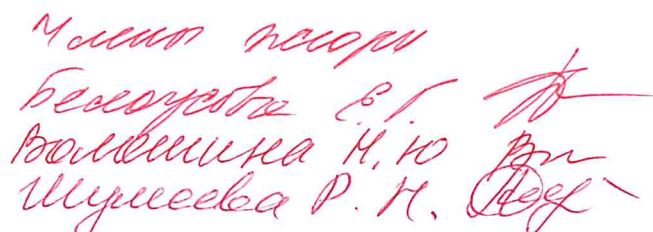 Члены жюри
Белоусова Е.Г.
Волошина Н.Ю
Шумеева Р.Н.